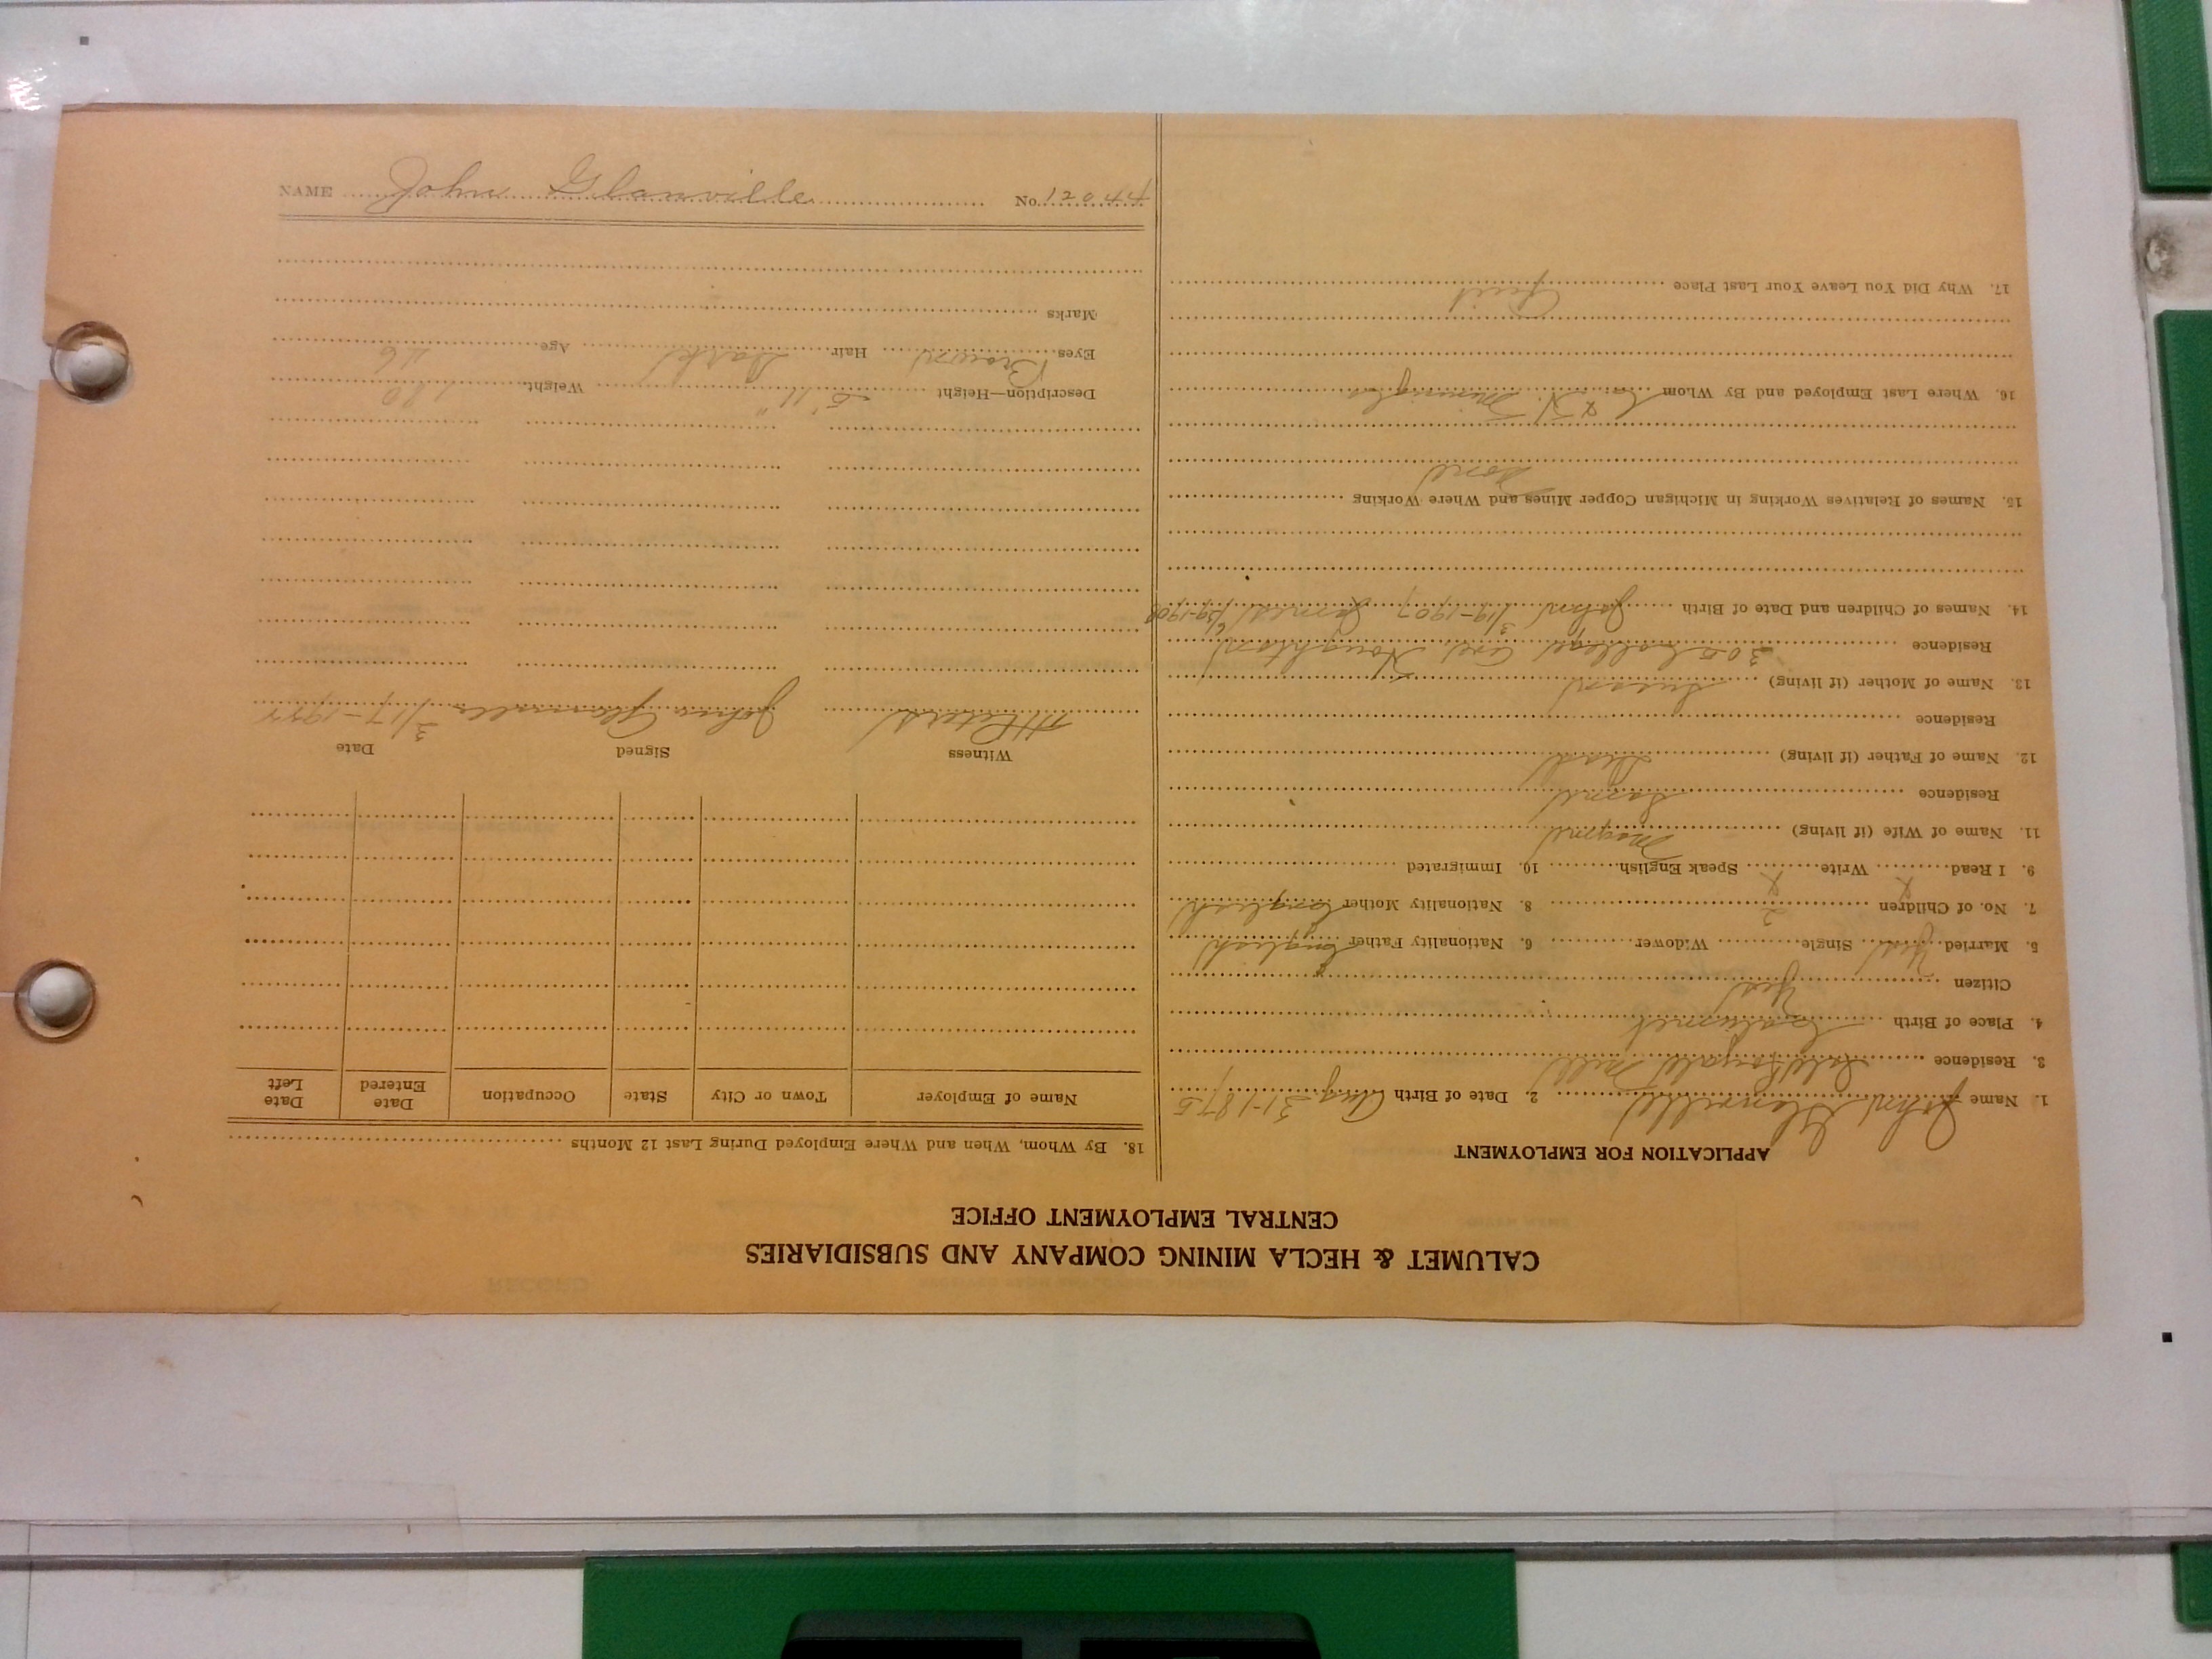 CALUMET & HECLA MINING COMPANY AND SUBSIDIARIES
CENTRAL EMPLOYMENT OFFICE
APPLICATION FOR EMPLOYMENT
1. Name John Glanville 2. Date of Birth Aug 31-1875
3. Residence
4. Place of Birth Calumet
Citizen Yes
5. Married Yes Single Widower 6. Nationality Father English
7. No. of Children 2 8. Nationality Mother English
9. I Read X Write X Speak English 10. Immigrated
11. Name of Wife (if living)
Residence Same
12. Name of Father (if living) Dead
Residence
13. Name of Mother (if living) Susan
Residence 305 College Ave Houghton
14. Names of Children and Date of Birth John 3/19-1907 James 6/29-1908
15. Names of Relatives Working in Michigan Copper Mines and Where Working
None
16. Where Last Employed and By Whom C. & H. Mining Co.
17. Why Did You Leave Your Last Place
Quit
18. By Whom, When and Where Employed During Last 12 Months
Name of Employer Town or City State Occupation Date Entered Date Left
Witness Signed Date
John Glanville 3/17-1922
Description—Height 5' 11" Weight 180
Eyes Brown Hair Dark Age 46
Marks
NAME John Glanville No. 12044
RECORD